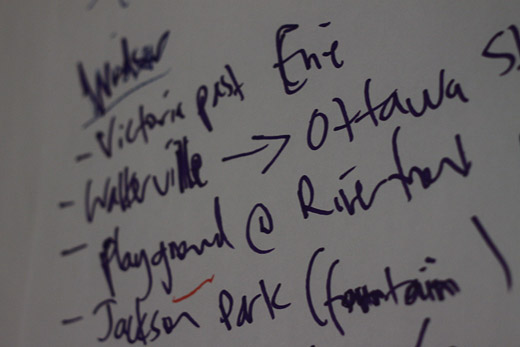 Windsor
- Victoria past Erie
- Walkerville → Ottawa St
- Playground @ Riverfront
- Jackson Park (fountain)